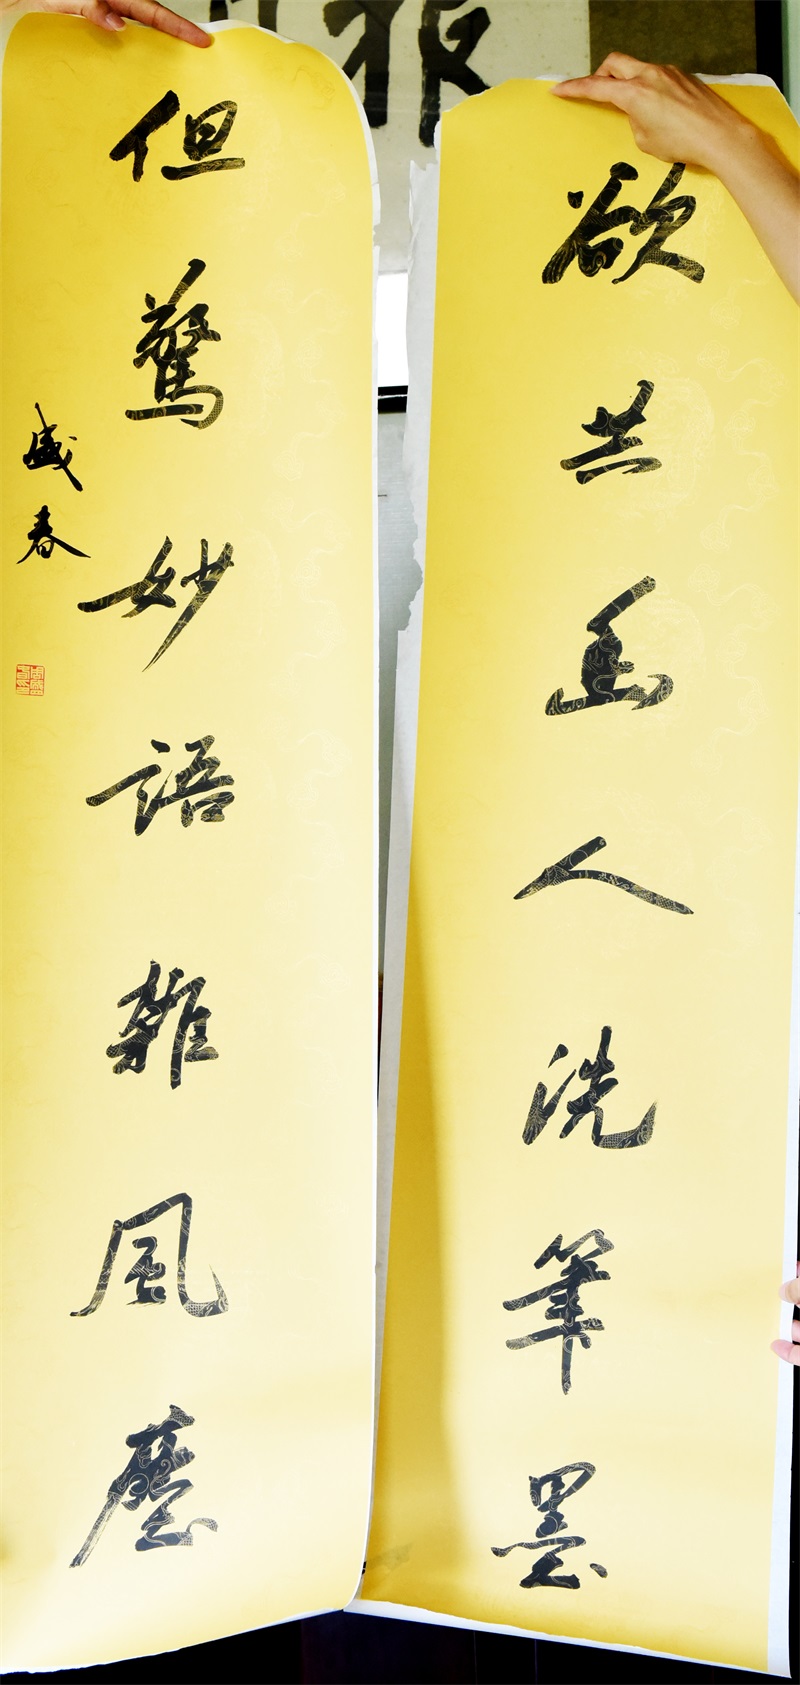 欲共幽人洗筆墨
但驚妙語雜風塵
盛春